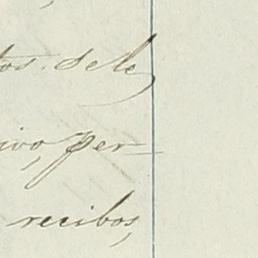 tos. sele
ivo, per-
recibos,